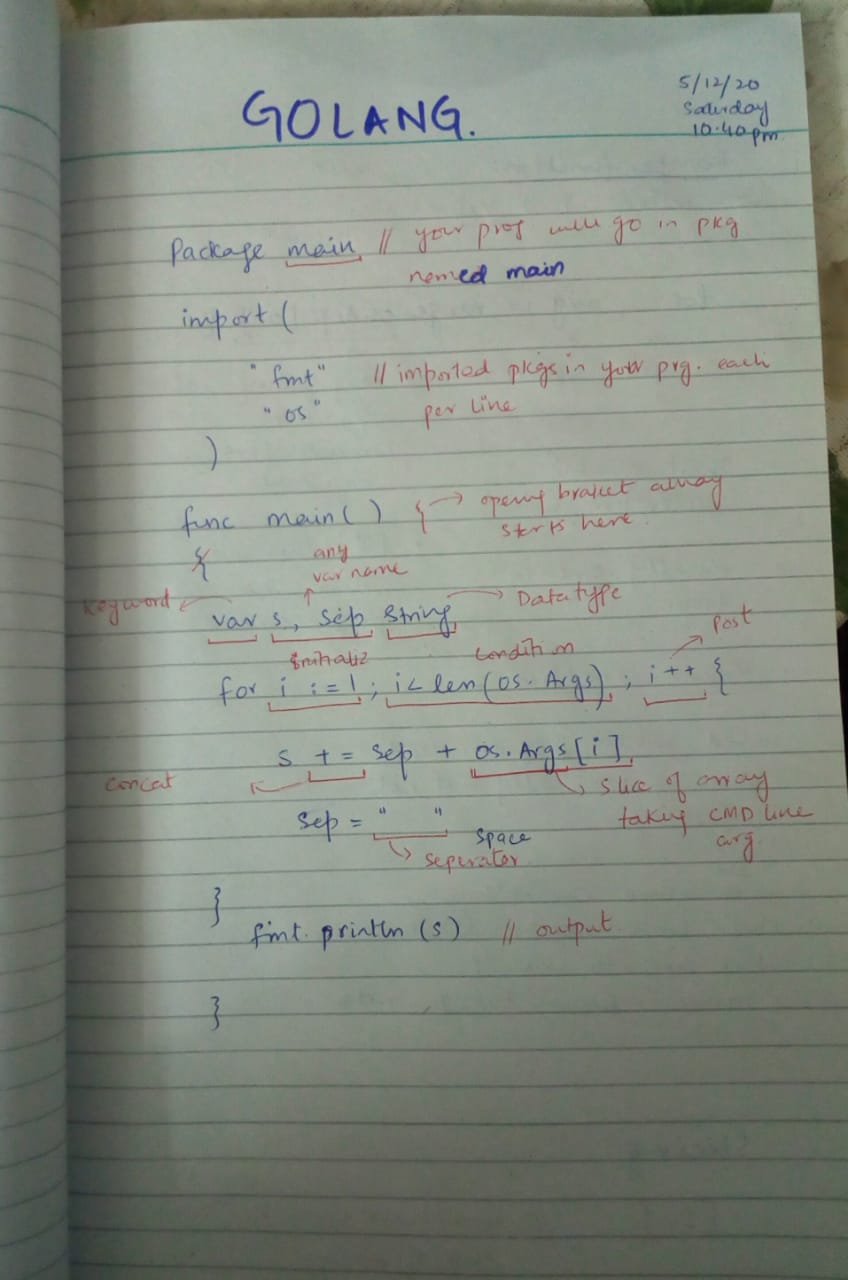 GOLANG.
5/12/20
Saturday
10:40pm
Package main // your prog will go in pkg
named main
import (
"fmt" // imported pkgs in your prg. each
"os" per line
)
func main() { → opening bracket alway
starts here.
{
any
var name
keyword
Datatype
var s, sep string
Post
Initializ
condition
for i := 1; i< len(os. Args) ; i++ {
s += sep + os. Args [i]
concat
slice of array
taking CMD line
arg
sep = " "
space
seperator
}
fmt. println (s) // output
}